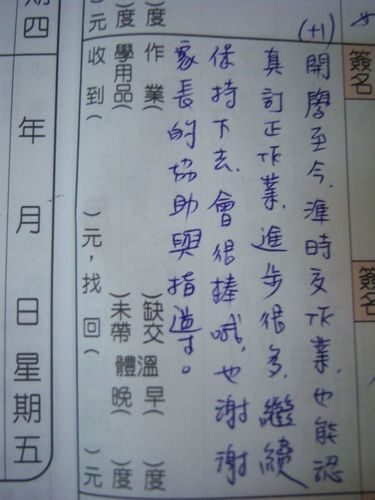 簽名
簽名
(+1)開學至今,準時交作業,也能認
真訂正作業,進步很多,繼續
保持下去,會很棒哦,也謝謝
家長的協助與指導。
作業( )缺交
學用品( )未帶
收到( )元,找回( )元
溫早( )度
體晚( )度
年 月 日 星期五
期四